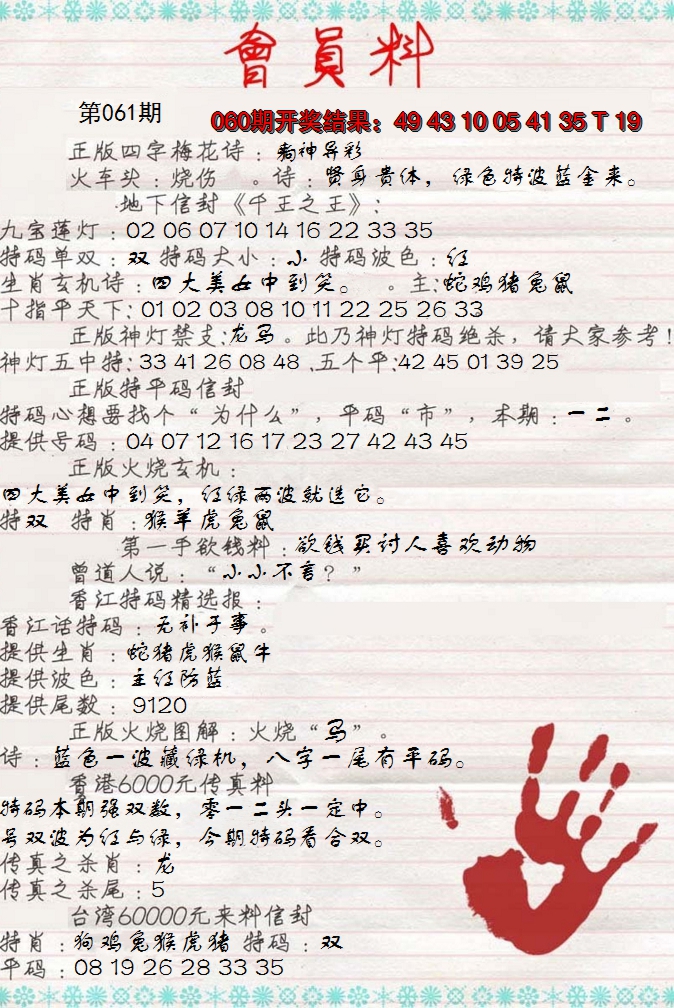 會員料
第061期
060期开奖结果：49 43 10 05 41 35 T 19
正版四字梅花诗：精神异彩
火车头：烧伤 。诗：贤身贵体，绿色特波蓝金来。
地下信封《千王之王》：
九宝莲灯：02 06 07 10 14 16 22 33 35
特码单双：双 特码大小：小 特码波色：红
生肖玄机诗：四大美女中到笑。 。主:蛇鸡猪兔鼠
十指平天下: 01 02 03 08 10 11 22 25 26 33
正版神灯禁支:龙马。此乃神灯特码绝杀，请大家参考!
神灯五中特: 33 41 26 08 48 .五个平:42 45 01 39 25
正版特平码信封
特码心想要找个“为什么”，平码“市”，本期：一二。
提供号码：04 07 12 16 17 23 27 42 43 45
正版火烧玄机：
四大美女中到笑，红绿两波就选它。
特双 特肖：猴羊虎兔鼠
第一手欲钱料：欲钱买讨人喜欢动物
曾道人说：“小小不言？”
香江特码精选报：
香江话特码：无补于事。
提供生肖：蛇猪虎猴鼠牛
提供波色：主红防蓝
提供尾数：9120
正版火烧图解：火烧“马”。
诗：蓝色一波藏绿机，八字一尾有平码。
香港6000元传真料
特码本期强双数，零一二头一定中。
号双波为红与绿，今期特码看合双。
传真之杀肖：龙
传真之杀尾：5
台湾60000元来料信封
特肖：狗鸡兔猴虎猪 特码：双
平码：08 19 26 28 33 35